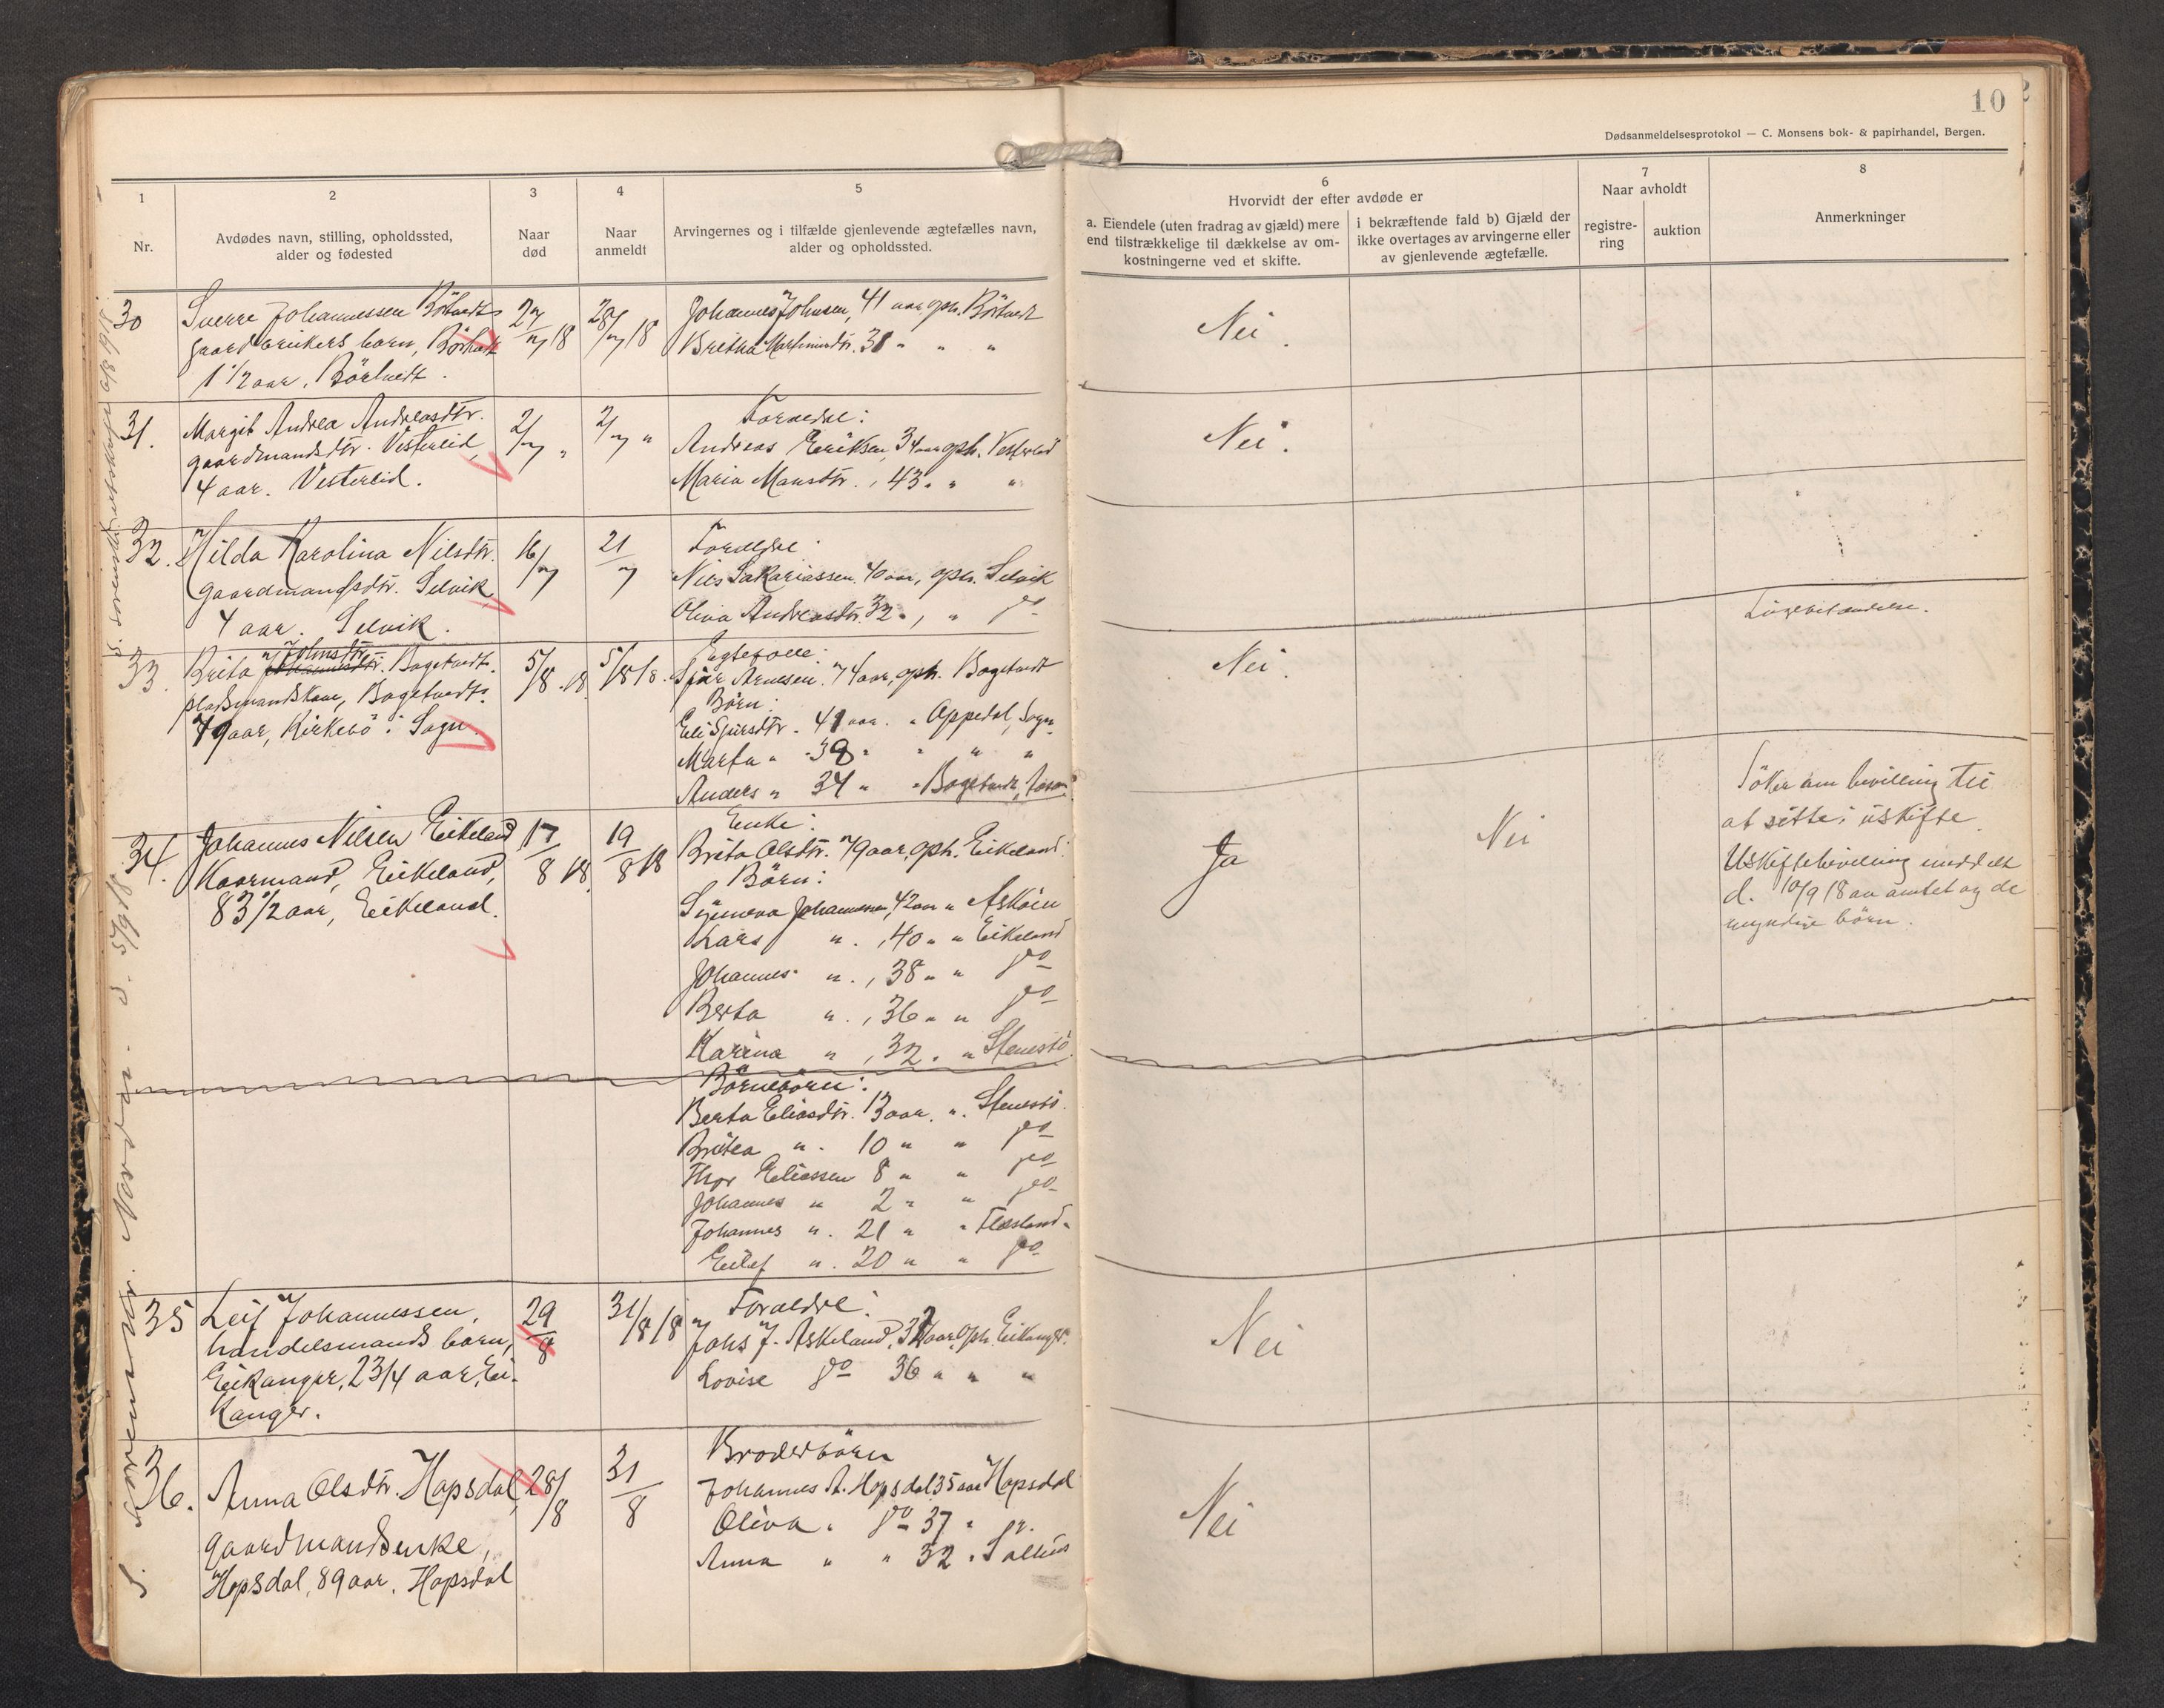 10
Dødsanmeldelsesprotokol — C. Monsens bok- & papirhandel, Bergen.
1
Nr.
2
Avdødes navn, stilling, opholdssted,
alder og fødested
3
Naar
død
4
Naar
anmeldt
5
Arvingernes og i tilfælde gjenlevende ægtefælles navn,
alder og opholdssted.
6
Hvorvidt der efter avdøde er
a. Eiendele (uten fradrag av gjæld) mere
end tilstrækkelige til dækkelse av om-
kostningerne ved et skifte.
i bekræftende fald b) Gjæld der
ikke overtages av arvingerne eller
av gjenlevende ægtefælle.
7
Naar avholdt
registre-
ring
auktion
8
Anmerkninger
30
Sverre Johannessen
gaardbrukers barn,
1 1/2 aar.
27/7 18
28/7 18
Johannes Johnsen, 41 aar, oph.
Britha Martinusdtr. 31 " " "
Nei.
31.
Margit Andrea Andreasdtr.
gaardmandsdtr. Vestereid,
4 aar. Vestereid.
2/7 "
2/7 "
Foraeldre:
Andreas Eriksen, 34 aar oph. Vestereid
Maria Mansdtr., 43 " " "
Nei.
32.
Hilda Karolina Nilsdtr.
gaardmandsdtr. Selvik
4 aar. Selvik.
16/7
21/7
Foraeldre:
Nils Sakariassen. 40 aar, oph. Selvik
Oliva Andreasdtr. 32 ", " do
33.
Brita Johnsdtr. Bogetvedt.
pladsmandskone, Bogetvedt.
79 aar, Kirkebö i Sogn.
5/8 18.
5/8 18.
Egtefolle:
Sjur Arnesen. 74 aar, oph. Bogetvedt
Börn:
Eli Sjursdtr. 41 aar. " Appedal, Sogn
Marta " 38 " " " "
Anders " 34 " " Bogetvedt,
Nei.
34.
Johannes Nilsen Eikeland
Kaarmand, Eikeland,
83 1/2 aar, Eikeland.
17/8 18.
19/8 18
Enke:
Brita Olsdtr. 79 aar, oph. Eikeland.
Börn:
Synneva Johannesen, 42 aar " Asköen
Lars " ., 40 " " Eikeland
Johannes " ., 38 " " do
Berta " ., 36 " " do
Karina " , 32 " " Stenestö.
Ja
Nei
Söker om bevilling til
at sitte i uskifte.
Uskiftebevilling meddelt
d. 10/9 18 av amtet og de
myndige börn.
Börnebörn:
Berta Eliasdtr. 13 aar. ". Stenestö.
Britea " . 10 " " do
Thor Eliassen 8 " " do
Johannes " 2 " " do
Johannes " . 21 " " Flesland "
Eilef " . 20 " " do
35
Leif Johannessen,
handelsmands barn,
Eikanger, 2 3/4 aar, Ei-
kanger.
29/8
31/8 18
Foraeldre:
Johs J. Askeland, aar, oph. Eikanger.
Lovise do 36 " " "
Nei
36.
Anna Olsdtr. Hopsdal,
gaardmandsenke,
Hopsdal, 89 aar. Hopsdal
28/8
31/8
Broderbörn
Johannes A. Hopsdal 35 aar Hopsdal
Oliva " do 37 " do.
Anna " " 32 " Salhus
Nei